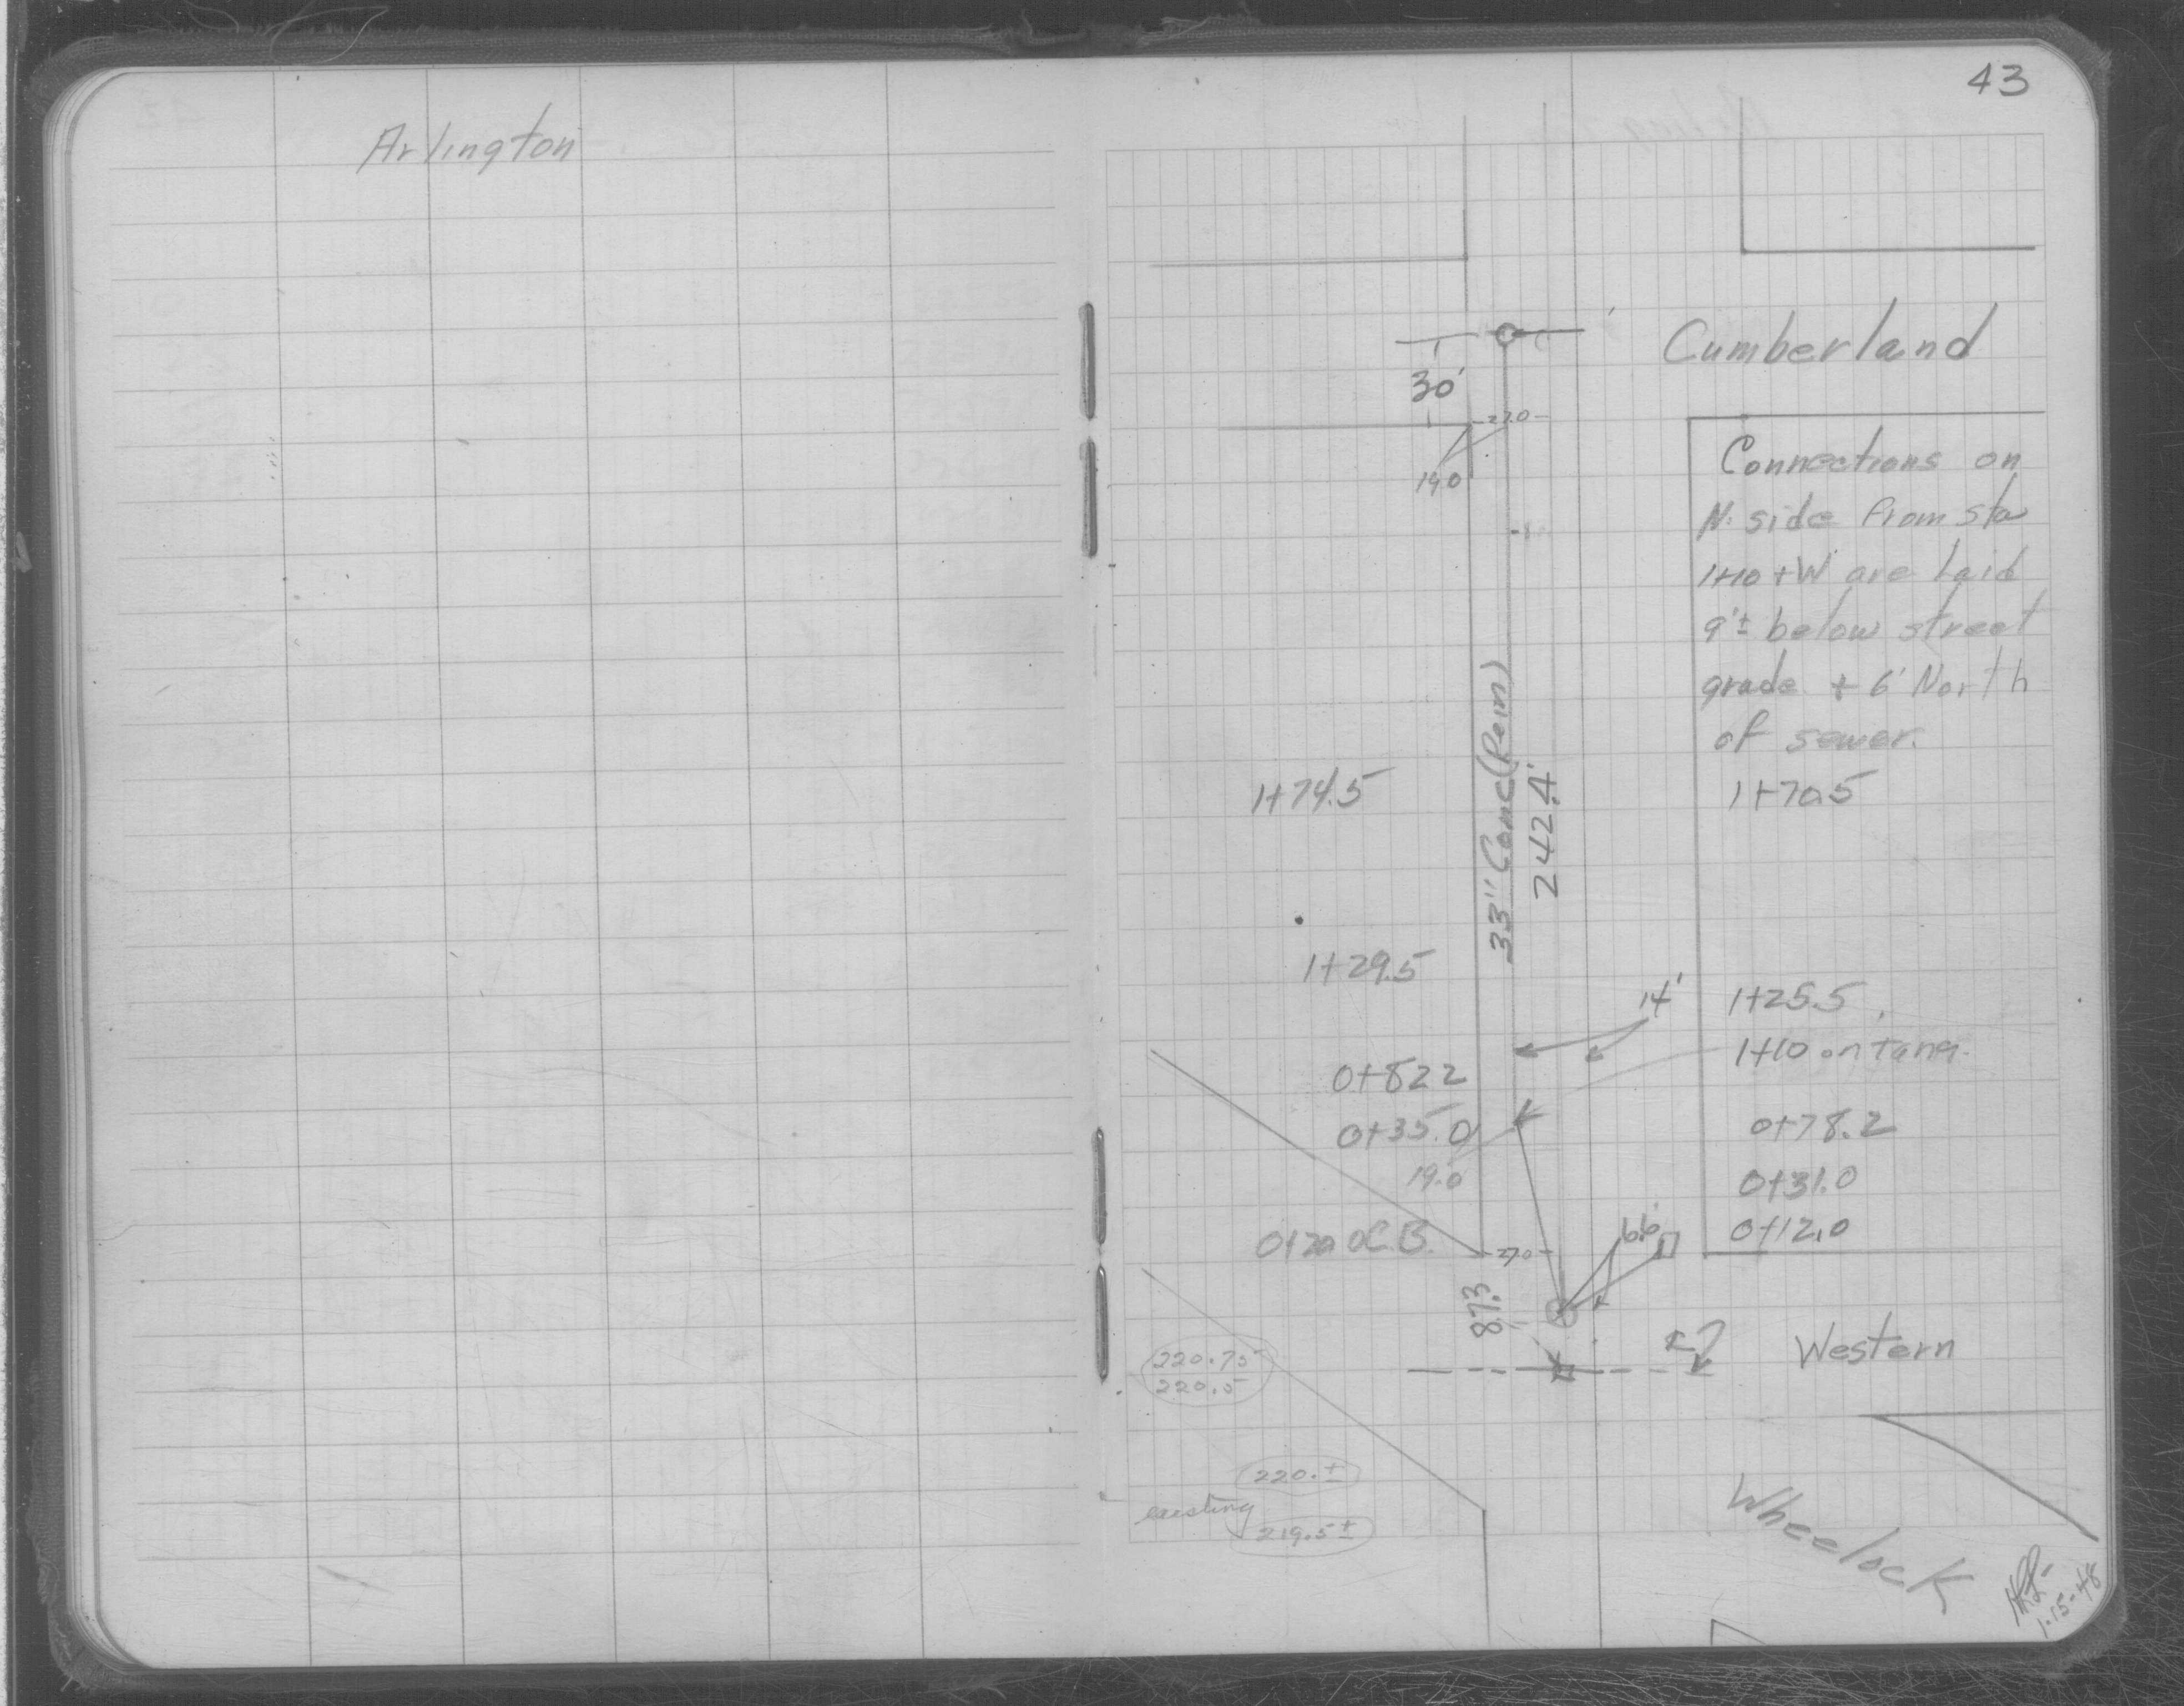 Arlington
43
Cumberland
30'
27.0
19.0
Connections on
N. side from sta
1+10 + W are laid
9'± below street
grade + 6' North
of sewer.
33" Conc (Rein)
242.4'
1+74.5
1+70.5
1+29.5
14'
1+25.5
1+10 on tang.
0+82.2
0+35.0
0+78.2
19.0
0+31.0
66'
0+12.0
C.B.
27.0
87.3
Western
220.75
220.5
220.±
existing
219.5±
Wheelock
1-15-48